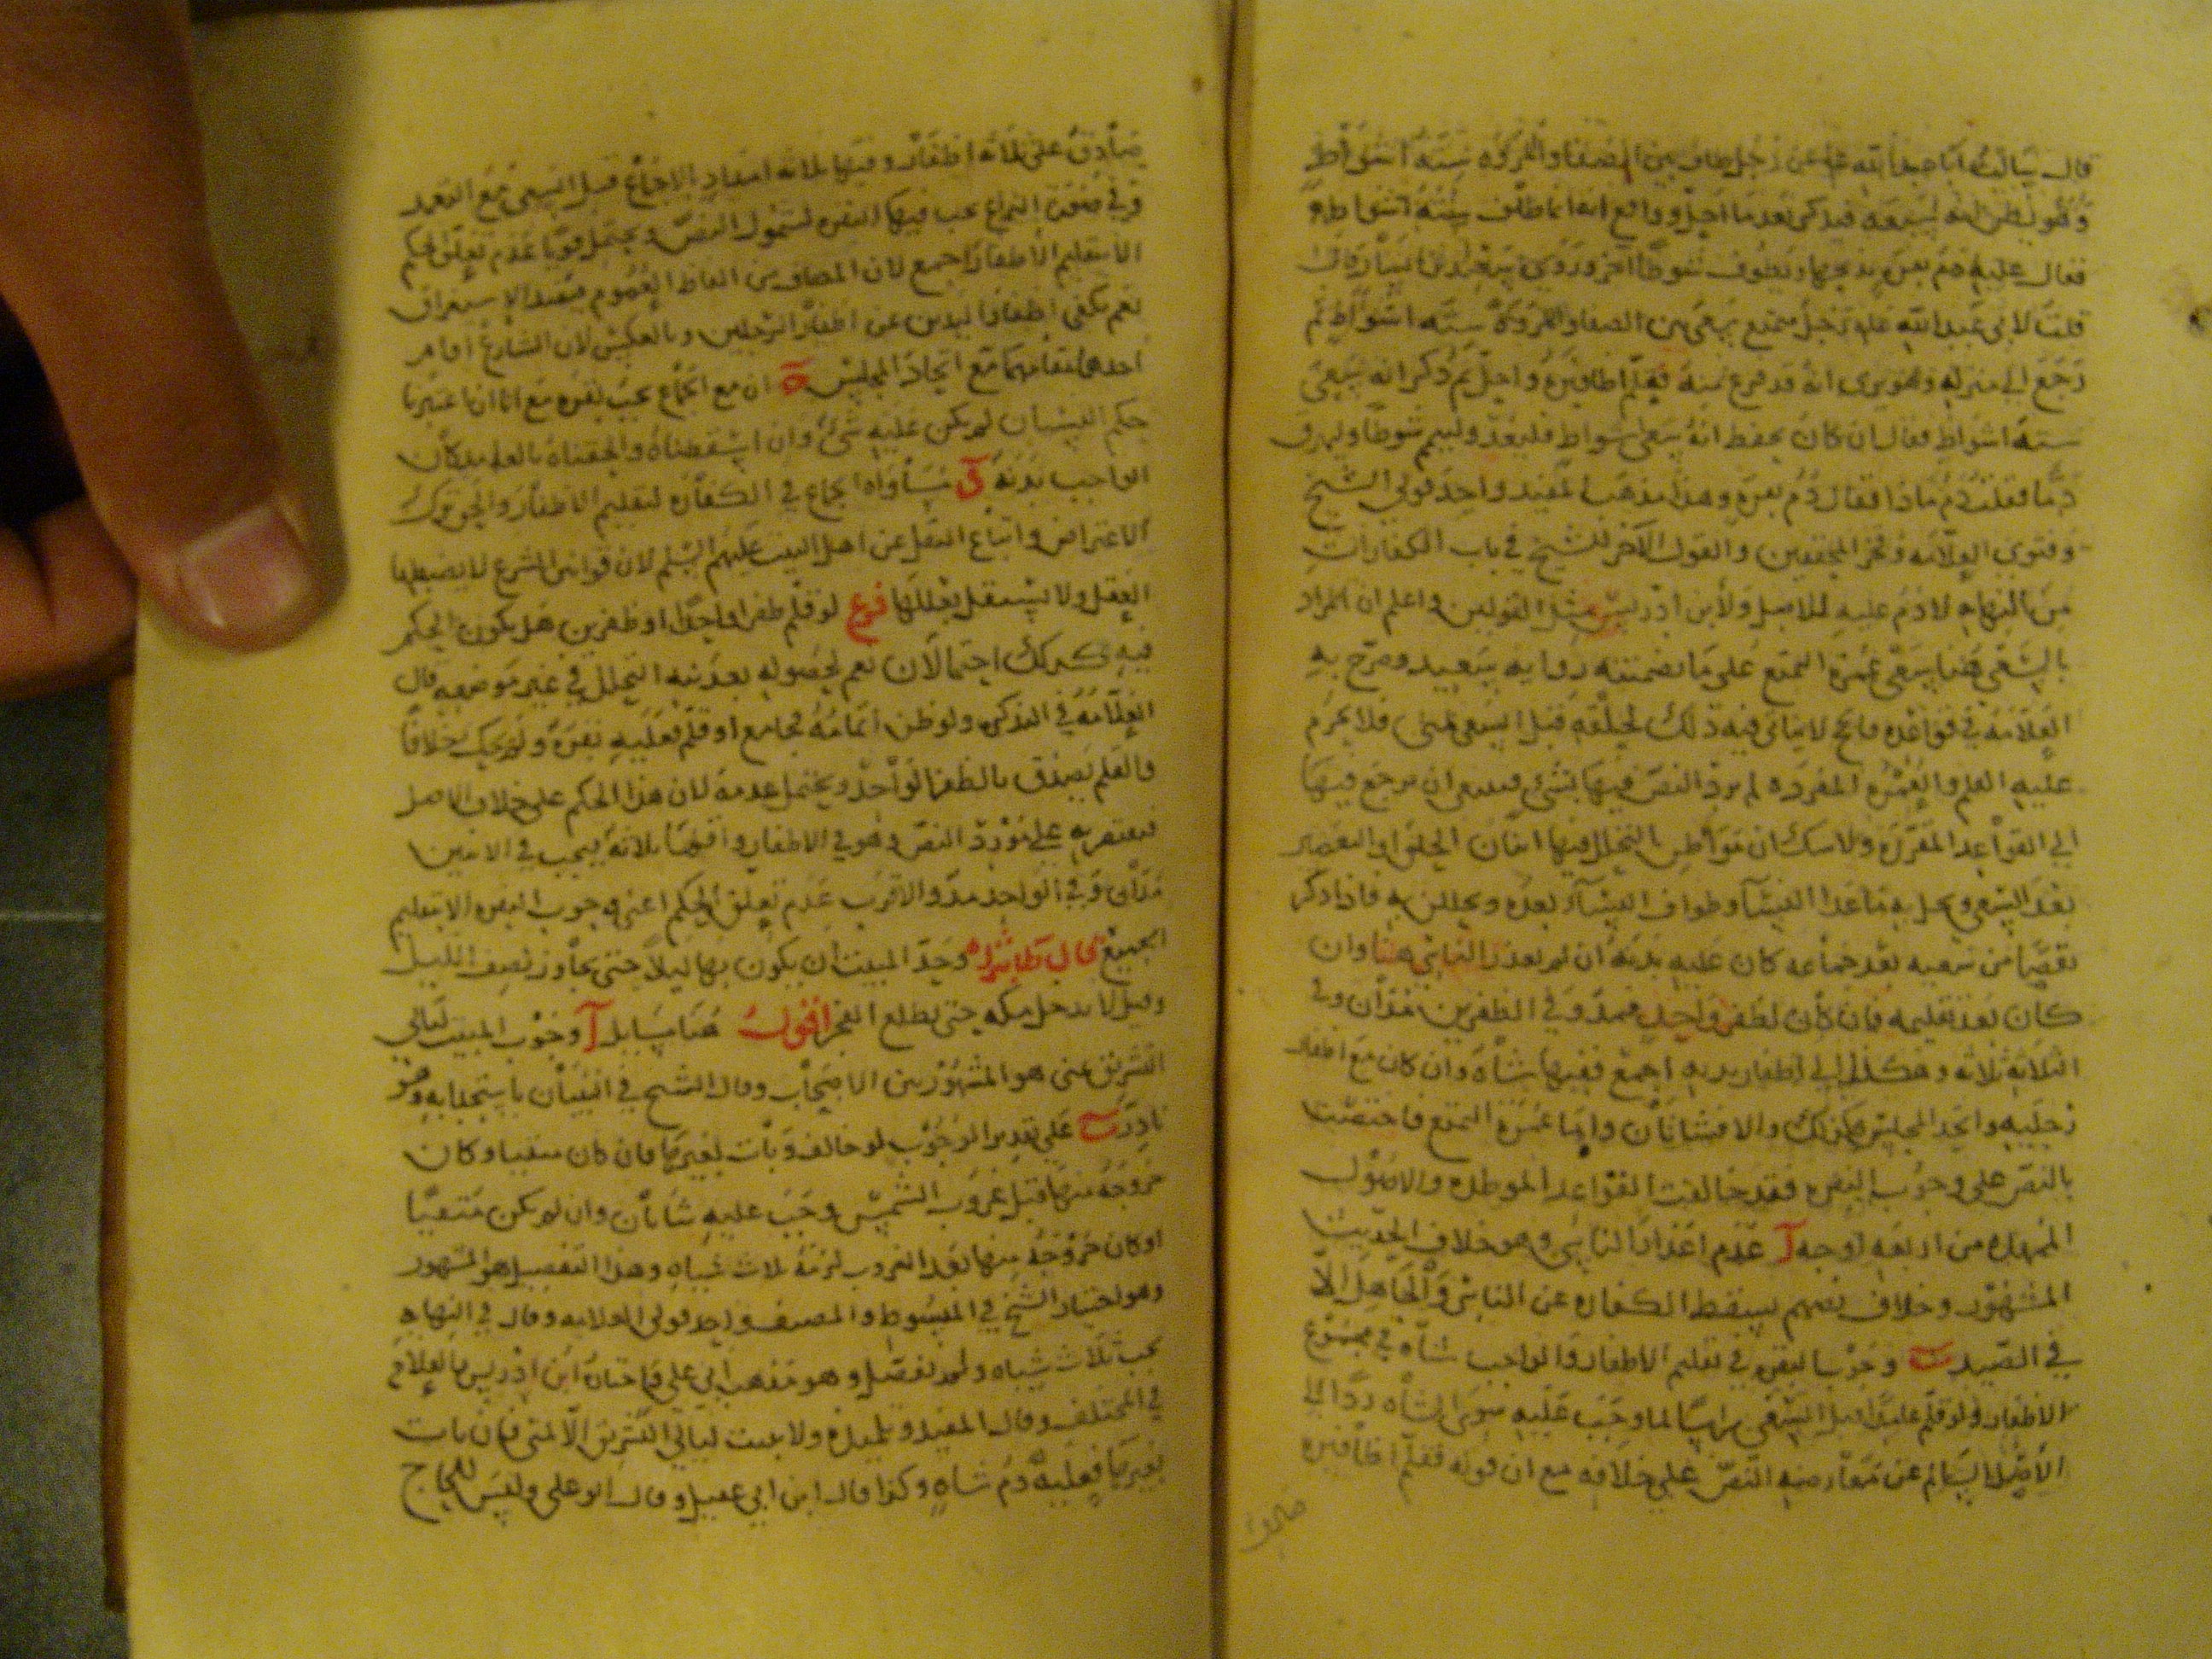 قال سالت ابا عبد الله عن رجل طاف بين الصفا والمروه ستة اشواط
وهو يظن انها سبعه فذكر بعد ما احل وواقع انه انما طاف ستة اشواط
فقال عليه دم بقره يذبحها ويطوف شوطا اخر وروى سعيد بن يسار قال
قلت لابي عبد الله رجل متمتع سعى بين الصفا والمروة ستة اشواط ثم
رجع الى منزله وهو يرى انه قد فرغ منه وقلم اظافيره واحل ثم ذكر انه سعى
ستة اشواط فقال ان كان يحفظ انه سعى ستة اشواط فليعد وليتم شوطا وليهرق
دما فقلت دم ماذا فقال دم بقره وهذا مذهب المفيد واحد قولي الشيخ
وفتوى العلامه وفخر المحققين والقول الاخر للشيخ في باب الكفارات
من النهايه لا دم عليه للاصل ولابن ادريس مثل القولين واعلم ان المراد
بالسعي هنا سعي عمرة التمتع على ما تضمنته روايه سعيد وصرح به
العلامه في قواعده والحج لا يتاتى فيه ذلك لحلقه قبل السعي بمنى فلا يحرم
عليه القلم والعمره المفرده لم يرد النص فيها بشيء فينبغي ان يرجع فيها
الى القواعد المقرره ولا شك ان مواطن التحلل فيها اثنان الحلق او التقصير
بعد السعي ويحل به ما عدا النساء وطواف النساء بعده ويحللن به فاذا ذكر
نقصا من سعيه بعد جماعه كان عليه بدنه ان لم يعذر الناسي هنا وان
كان بعد تقليمه فان كان لظفر واحد فمد وفي الظفرين مدان وفي
الثلاثه ثلاثه وهكذا الى اظفار يديه اجمع ففيها شاة وان كان مع اظفار
رجليه واتحد المجلس فكذلك والا فشاتان واما عمرة التمتع فاختصت
بالنص على وجوب البقره فقد خالفت القواعد الموطده والاصول
الممهده من اربعه اوجه آ عدم اعذار الناسي وهو خلاف الحديث
المشهور وخلاف نصهم بسقوط الكفاره عن الناسي والجاهل الا
في الصيد ب وجوب البقره في تقليم الاظفار والواجب شاة في مجموع
الاظفار ولو قلم عامدا قبل السعي راسا لما وجب عليه سوى الشاه ردا الى
الاصل السالم عن معارضه النص على خلافه مع ان قوله فقلم اظافيره
صادق على ثلاثه اظفار وفيها ثلاثه امداد الاجماع قبل السعي مع التعمد
وفي صورة النزاع يجب فيها البقره لشمول النص ويحتمل قويا عدم تعلق الحكم
الا بتقليم الاظفار اجمع لان المضاف من الفاظ العموم فيفيد الاستغراق
نعم تكفي اظفار اليدين عن اظفار الرجلين وبالعكس لان الشارع اقام
احدهما مقامهما مع اتحاد المجلس ج ان مع الجماع يجب بقره مع انا ان اعتبرنا
حكم النسيان لم يكن عليه شيء وان اسقطناه والحقناه بالعامد كان
الواجب بدنه د مساواه الجماع في الكفاره لتقليم الاظفار والحق ترك
الاعتراض واتباع النقل عن اهل البيت عليهم السلم لان قوانين الشرع لا يضبطها
العقل ولا يستقل بعللها فرع لو قلم ظفرا واحدا او ظفرين هل يكون الحكم
فيه كذلك احتمالان نعم لحصوله بعد نيه التحلل في غير موضعه قال
العلامه في التذكره ولو ظن اتمامه فجامع او قلم فعليه بقره ولم يحك خلافا
والقلم يصدق بالظفر الواحد ويحتمل عدمه لان هذا الحكم على خلاف الاصل
فيقتصر به على مورد النص وهو في الاظفار واقلها ثلاثه فيجب في الاثنين
مدان وفي الواحد مد والاقرب عدم تعلق الحكم اعني وجوب البقره الا بتقليم
الجميع قال طاب ثراه وحد المبيت ان يكون بها ليلا حتى يجاوز نصف الليل
وقيل لا يدخل مكه حتى يطلع الفجر اقول هنا مسايل آ وجوب المبيت ليالي
التشريق بمنى هو المشهور بين الاصحاب وقال الشيخ في التبيان باستحبابه وهو
نادر ب على تقدير الوجوب لو خالف وبات بغيرها فان كان متقيا وكان
خروجه منها قبل غروب الشمس وجب عليه شاتان وان لم يكن متقيا
او كان خروجه منها بعد الغروب لزمه ثلاث شياه وهذا التفصيل هو المشهور
وهو اختيار الشيخ في المبسوط والمصنف واحد قولي العلامه وقال في النهايه
يجب ثلاث شياه ولم يفصل وهو مذهب ابي علي واختاره ابن ادريس والعلامه
في المختلف وقال المفيد وتلميذه ولا يبيت ليالي التشريق الا بمنى فان بات
بغيرها فعليه دم شاه وكذا قال ابن ابي عقيل وقال ابو علي وليس للحاج